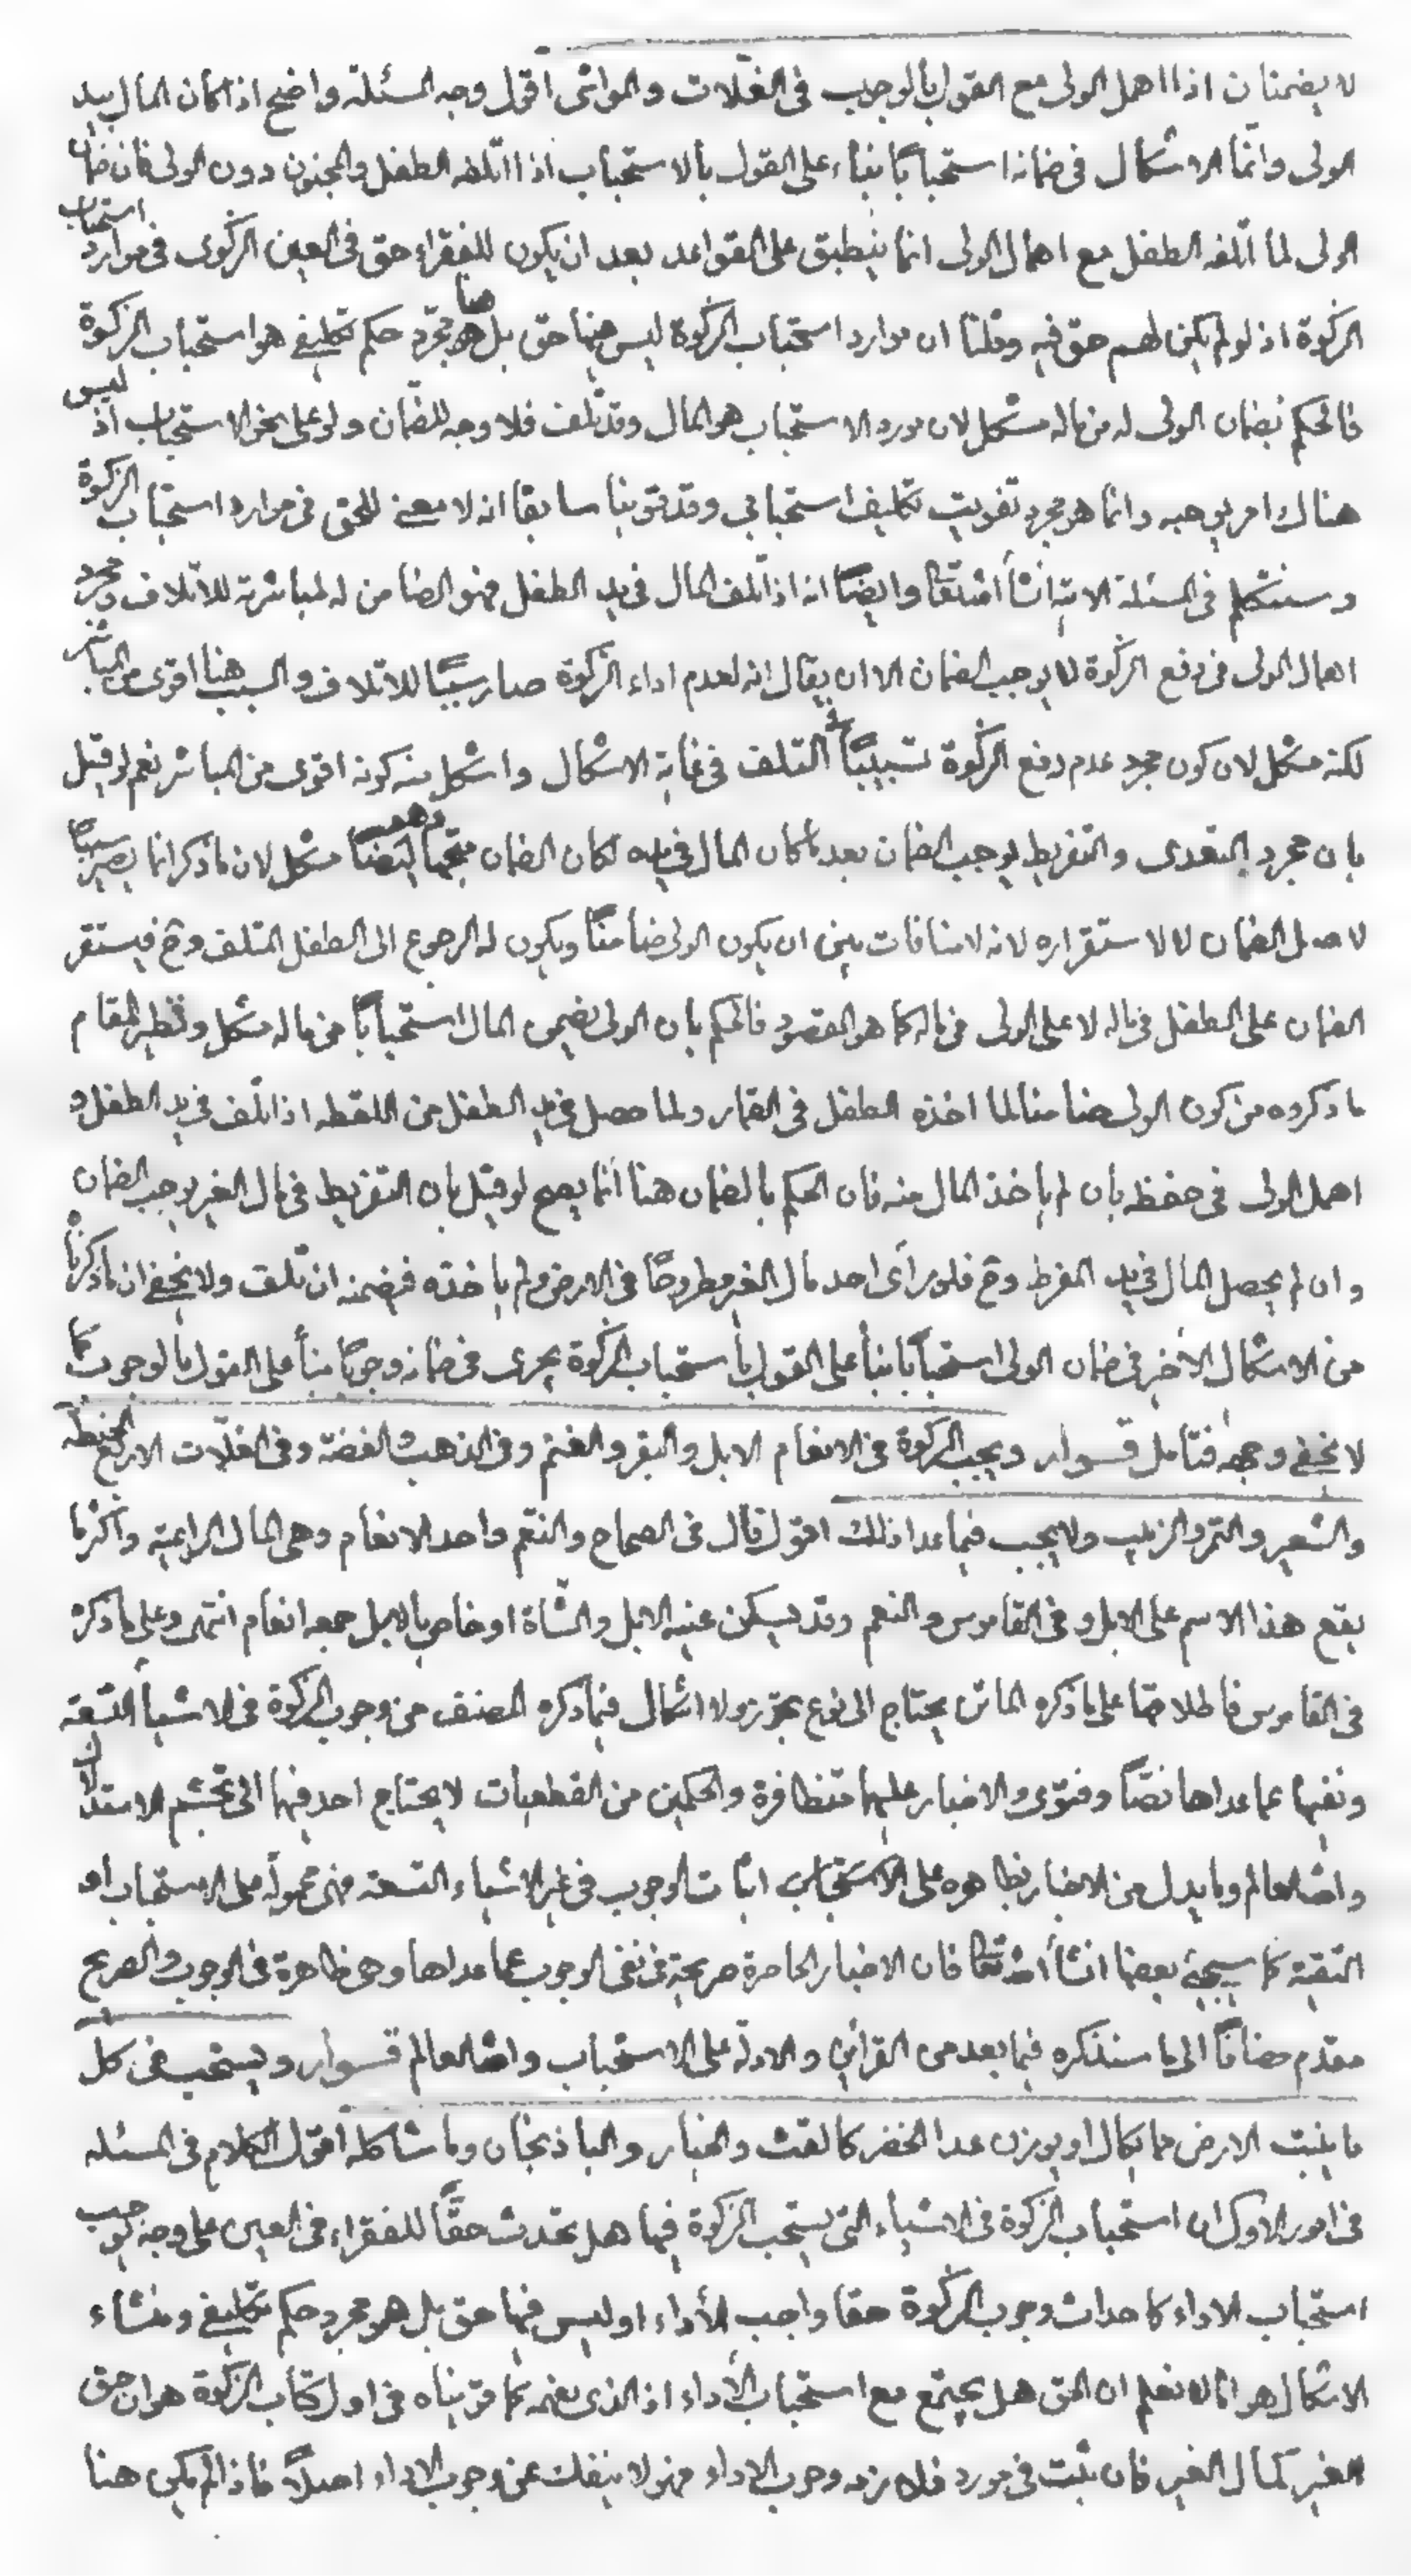 لا يضمنان اذا اهمل الولى مع القول بالوجوب فى الغلّات والمواشى اقول وجه المسئلة واضح اذا كان المال بيد
الولى وانّما الاشكال فى ضمانه استحباباً بناء على القول بالاستحباب اذا اتلفه الطفل والمجنون دون الولى فان ضمان
الولى لما اتلفه الطفل مع اهمال الولى انما ينطبق على القواعد بعد ان يكون للفقراء حق فى العين الزكوى فى موارد استحباب
الزكوة اذ لو لم يكن لهم حق فيه وقلنا ان موارد استحباب الزكوة ليس فيها حق بل هو مجرّد حكم تكليفى هو استحباب الزكوة
فالحكم بضمان الولى له من ماله مشكل لان مورد الاستحباب هو المال وقد تلف فلا وجه للضمان ولو على نحو الاستحباب اذ ليس
هناك امر يوجبه وانما هو مجرد تفويت تكليف استحبابى وقد قوينا سابقا انه لا معنى للحق فى موارد استحباب الزكوة
وسنتكلم فى المسئلة الاتيه انشأ الله تعا وايضاً انه اذا تلف المال فى يد الطفل فهو الضامن له لمباشرته للاتلاف ومجرد
اهمال الولى فى دفع الزكوة لا يوجب الضمان الا ان يقال انه لعدم اداء الزكوة صار سبباً للاتلاف والسبب هنا اقوى من المباشر
لكنه مشكل لان كون مجرد عدم دفع الزكوة تسبيباً التلف فى غاية الاشكال واشكل منه كونه اقوى من المباشر نعم لو قيل
بان مجرد التعدى والتفريط يوجب الضمان بعد ما كان المال فى يده لكان الضمان متجهاً ايضاً مشكل لان ما ذكر انما يصير سبباً
لاصل الضمان لا لاستقراره لانه لا منافات بين ان يكون الولى ضامناً ويكون له الرجوع الى الطفل المتلف وح فيستقر
الضمان على الطفل فى ماله لا على الولى فى ماله كما هو المقصود فالحكم بان الولى يضمن المال استحباباً من ماله مشكل ونظير المقام
ما ذكروه من كون الولى ضامنا لما اخذه الطفل فى القمار ولما حصل فى يد الطفل من اللقطه اذا تلف فى يد الطفل و
اهمل الولى فى حفظه بان لم ياخذ المال منه فان الحكم بالضمان هنا انما يصح لو قيل بان التفريط فى مال الغير يوجب الضمان
وان لم يحصل المال فى يد المفرط وح فلو رأى احد مال الغير مطروحاً فى الارض ولم ياخذه فيضمنه ان تلف ولا يخفى ان ما ذكرناه
من الاشكال الاخير فى ضمان الولى استحباباً بناً على القول باستحباب الزكوة يجرى فى ضمانه وجوباً بناً على القول بالوجوب كما
لا يخفى وجهه فتامل قوله ويجب الزكوة فى الانعام الابل والبقر والغنم وفى الذهب والفضة وفى الغلّات الاربع الحنطة
والشعير والتمر والزبيب ولا يجب فيما عدا ذلك اقول قال فى الصحاح والنعم واحد الانعام وهى المال الراعية واكثر ما
يقع هذا الاسم على الابل وفى القاموس والنعم وقد يسكن عينه الابل والشاة او خاص بالابل جمعه انعام انتهى وعلى ما ذكره
فى القاموس فاطلاقها على ما ذكره الماتن يحتاج الى نوع تجوّز ولا اشكال فيما ذكره المصنف من وجوب الزكوة فى الاشيأ التسعة
ونفيها عما عداها نصّاً وفتوى والاخبار عليهما متظافرة والحكمين من القطعيات لا يحتاج احد فيهما الى تجشم الاستدلال
والله العالم وما يدل من الاخبار بظاهره على اثبات الوجوب فى غير الاشياء التسعة فهى محمولة على الاستحباب او
التقية كما سيجيئ بعضها انشأ الله تعا فان الاخبار الحاصرة صريحة فى نفى الوجوب عما عداها وهى ظاهرة فى الوجوب والصريح
مقدّم مضافاً الى ما سنذكره فيما بعد من القرائن والادلة على الاستحباب والله العالم قوله ويستحب فى كل
ما ينبت الارض مما يكال او يوزن عدا الخضر كالقت والخيار والباذنجان وما شاكله اقول الكلام فى المسئله
فى امور الاول ان استحباب الزكوة فى الاشياء التى يستحب الزكوة فيها هل يحدث حقّاً للفقراء فى العين على وجه يوجب
استحباب الاداء كاحداث وجوب الزكوة حقا واجب الأداء او ليس فيها حق بل هو مجرد حكم تكليفى ومنشاء
الاشكال هو انا لا نعلم ان الحق هل يجتمع مع استحباب الأداء اذ الذى نفهمه كما قوّيناه فى اول كتاب الزكوة هو ان حق
الغير كمال الغير فان ثبت فى مورد فلازمه وجوب الاداء فهو لا ينفك عن وجوب الاداء اصلاً فاذا لم يكن هنا